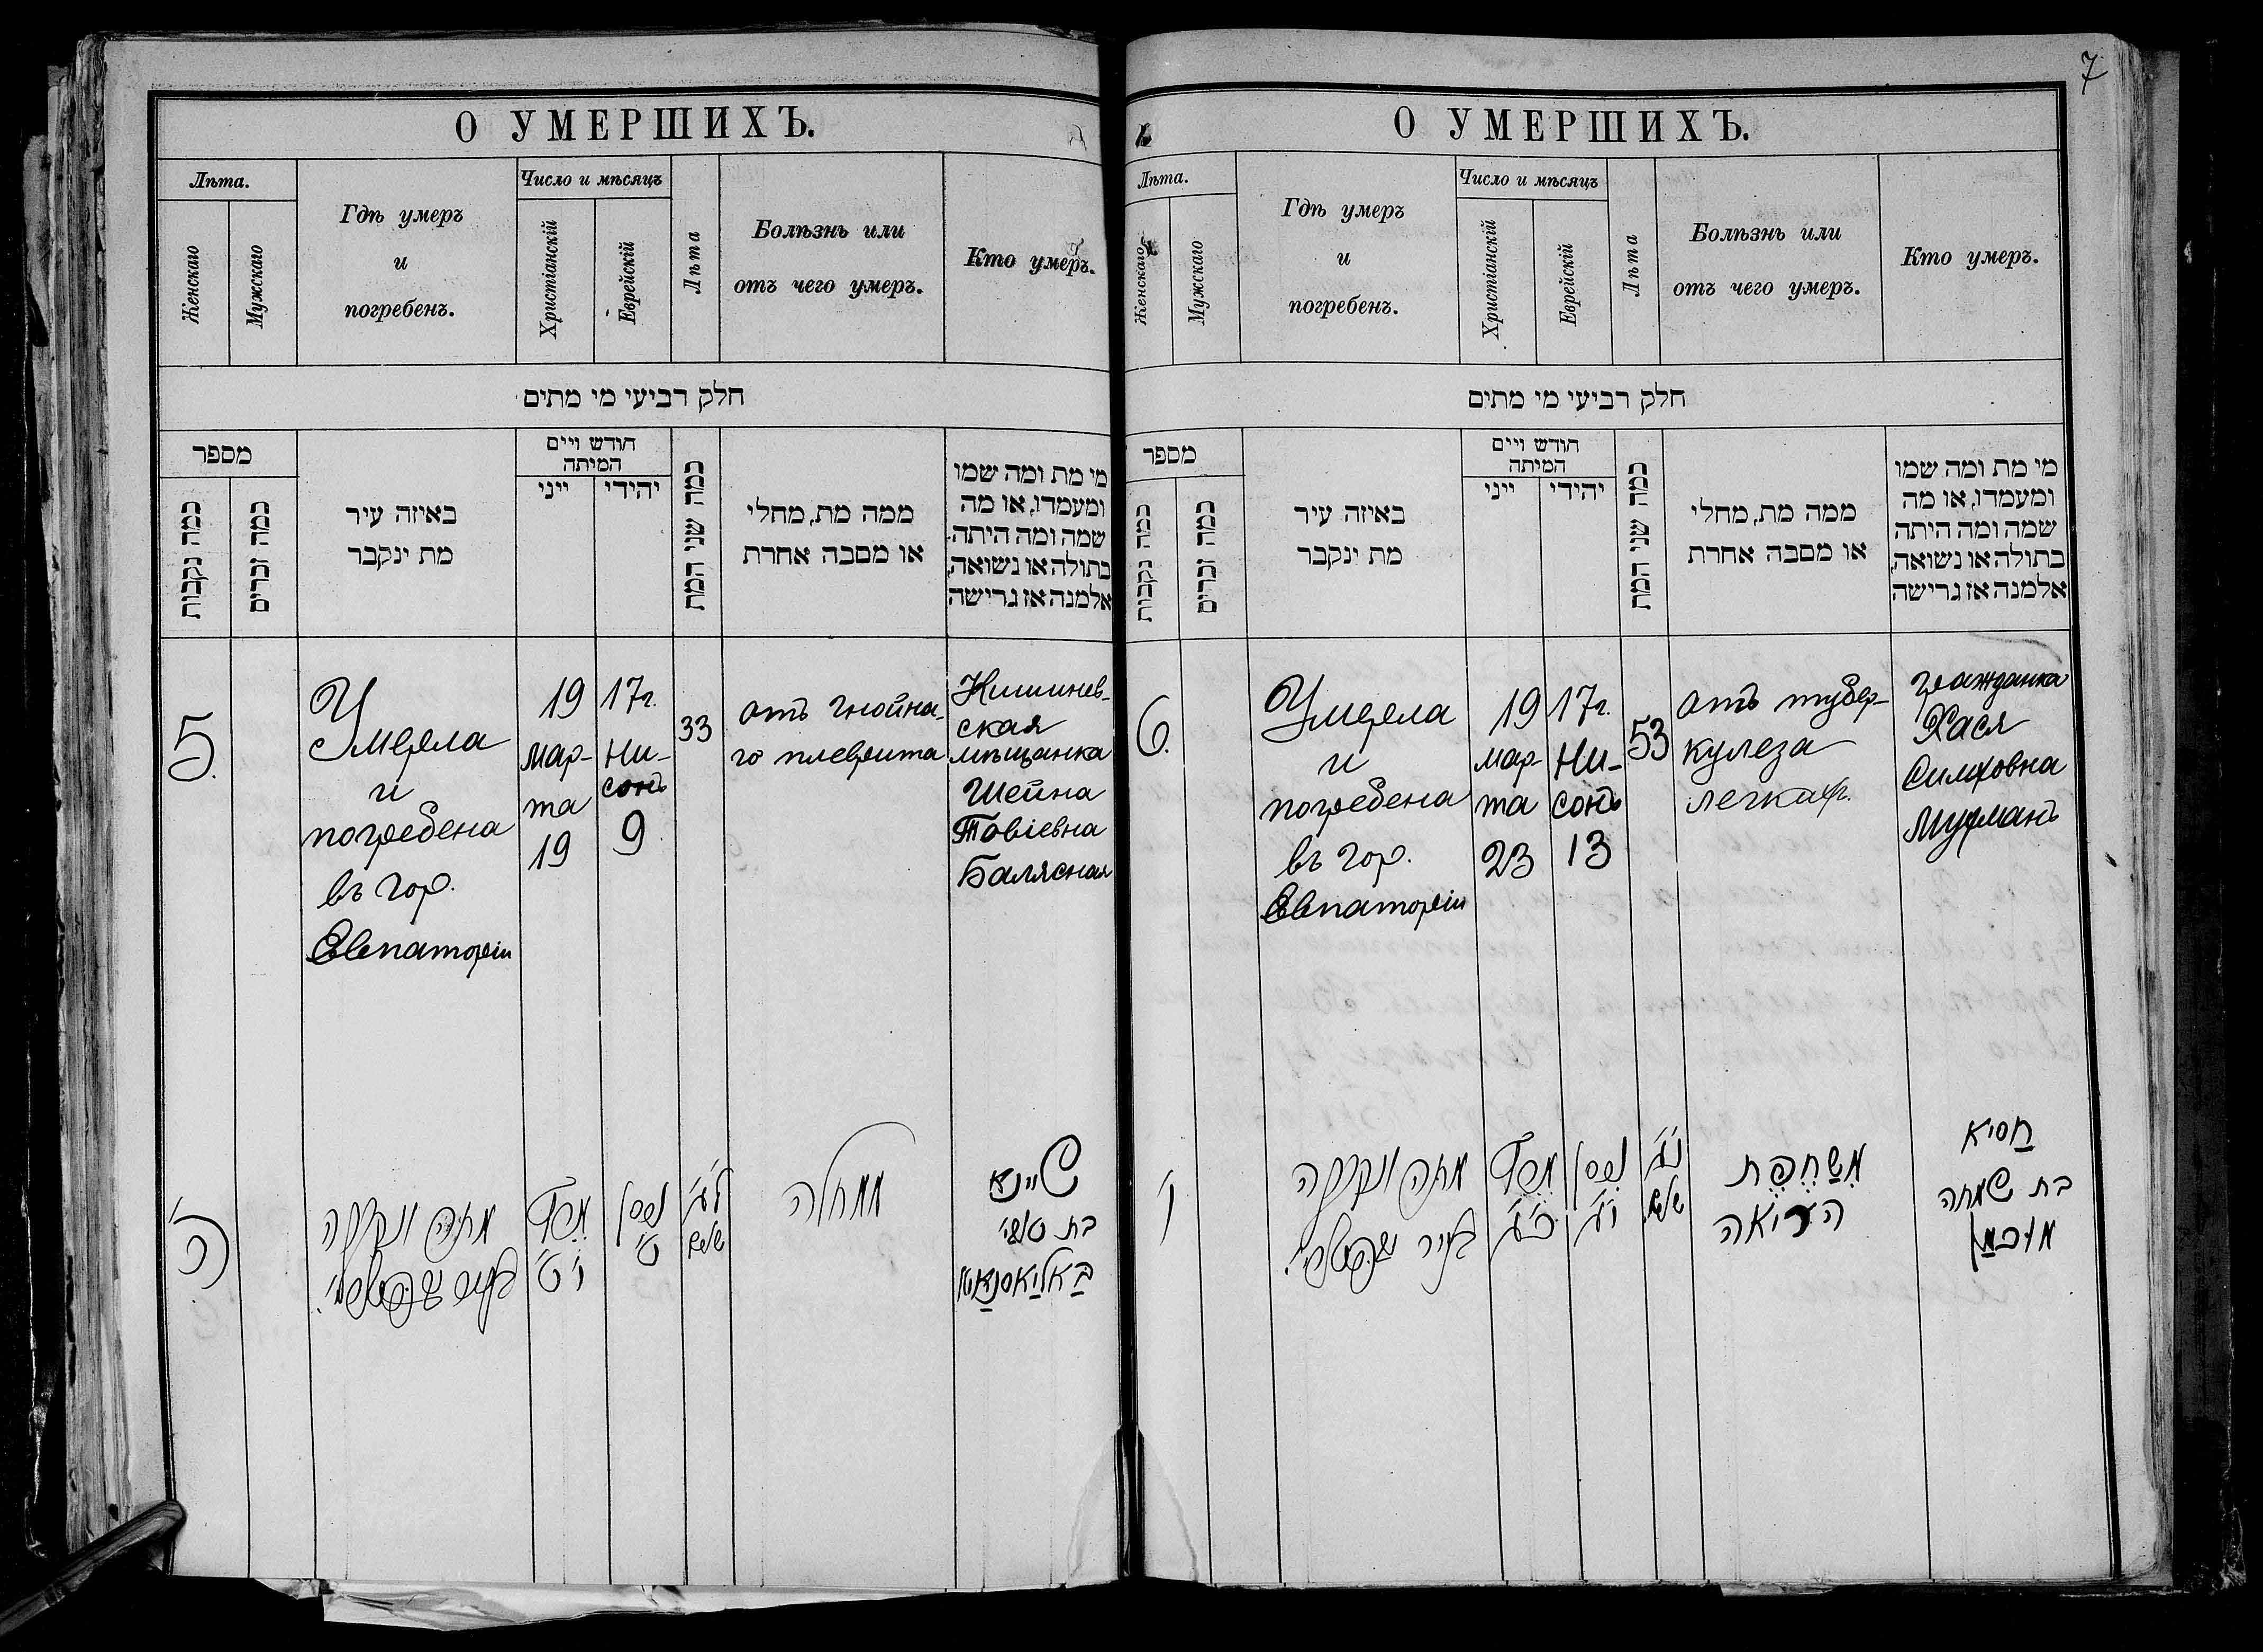 7
О УМЕРШИХЪ.
Лѣта.
Женскаго
Мужскаго
Гдѣ умеръ
и
погребенъ.
Число и мѣсяцъ
Христіанскій
Еврейскій
Лѣта
Болѣзнь или
отъ чего умеръ.
Кто умеръ.
חלק רביעי מי מתים
מספר
כמה נקבות
כמה זכרים
באיזה עיר
מת ינקבר
חודש ויים
המיתה
ייני
יהידי
כמה שני המת
ממה מת, מחלי
או מסבה אחרת
מי מת ומה שמו
ומעמדו, או מה
שמה ומה היתה
בתולה או נשואה,
אלמנה אז גרישה
5.
Умерла
и
погребена
въ гор.
Евпаторіи
19
мар-
та
19
17г.
Ни-
сонъ
9
33
отъ гнойна-
го плеврита
Кишинев-
ская
мѣщанка
Шейна
Товіевна
Балясная
ה'
מתה ונקברה
בעיר
י"ט
ניסן
ט'
ל"ג
שנים
ממחלה
שיינא
בת טובי'
באליאסנאיא
О УМЕРШИХЪ.
Лѣта.
Женскаго
Мужскаго
Гдѣ умеръ
и
погребенъ.
Число и мѣсяцъ
Христіанскій
Еврейскій
Лѣта
Болѣзнь или
отъ чего умеръ.
Кто умеръ.
חלק רביעי מי מתים
מספר
כמה נקבות
כמה זכרים
באיזה עיר
מת ינקבר
חודש ויים
המיתה
ייני
יהידי
כמה שני המת
ממה מת, מחלי
או מסבה אחרת
מי מת ומה שמו
ומעמדו, או מה
שמה ומה היתה
בתולה או נשואה,
אלמנה אז גרישה
6.
Умерла
и
погребена
въ гор.
Евпаторіи
19
мар-
та
23
17г.
Ни-
сонъ
13
53
отъ тубер-
кулеза
легкихъ.
гражданка
Хася
Симховна
Мурманъ
ו'
מתה ונקברה
בעיר
כ"ג
ניסן
י"ג
נ"ג
שנים
משחפת
הריאה
חסיא
בת שמחה